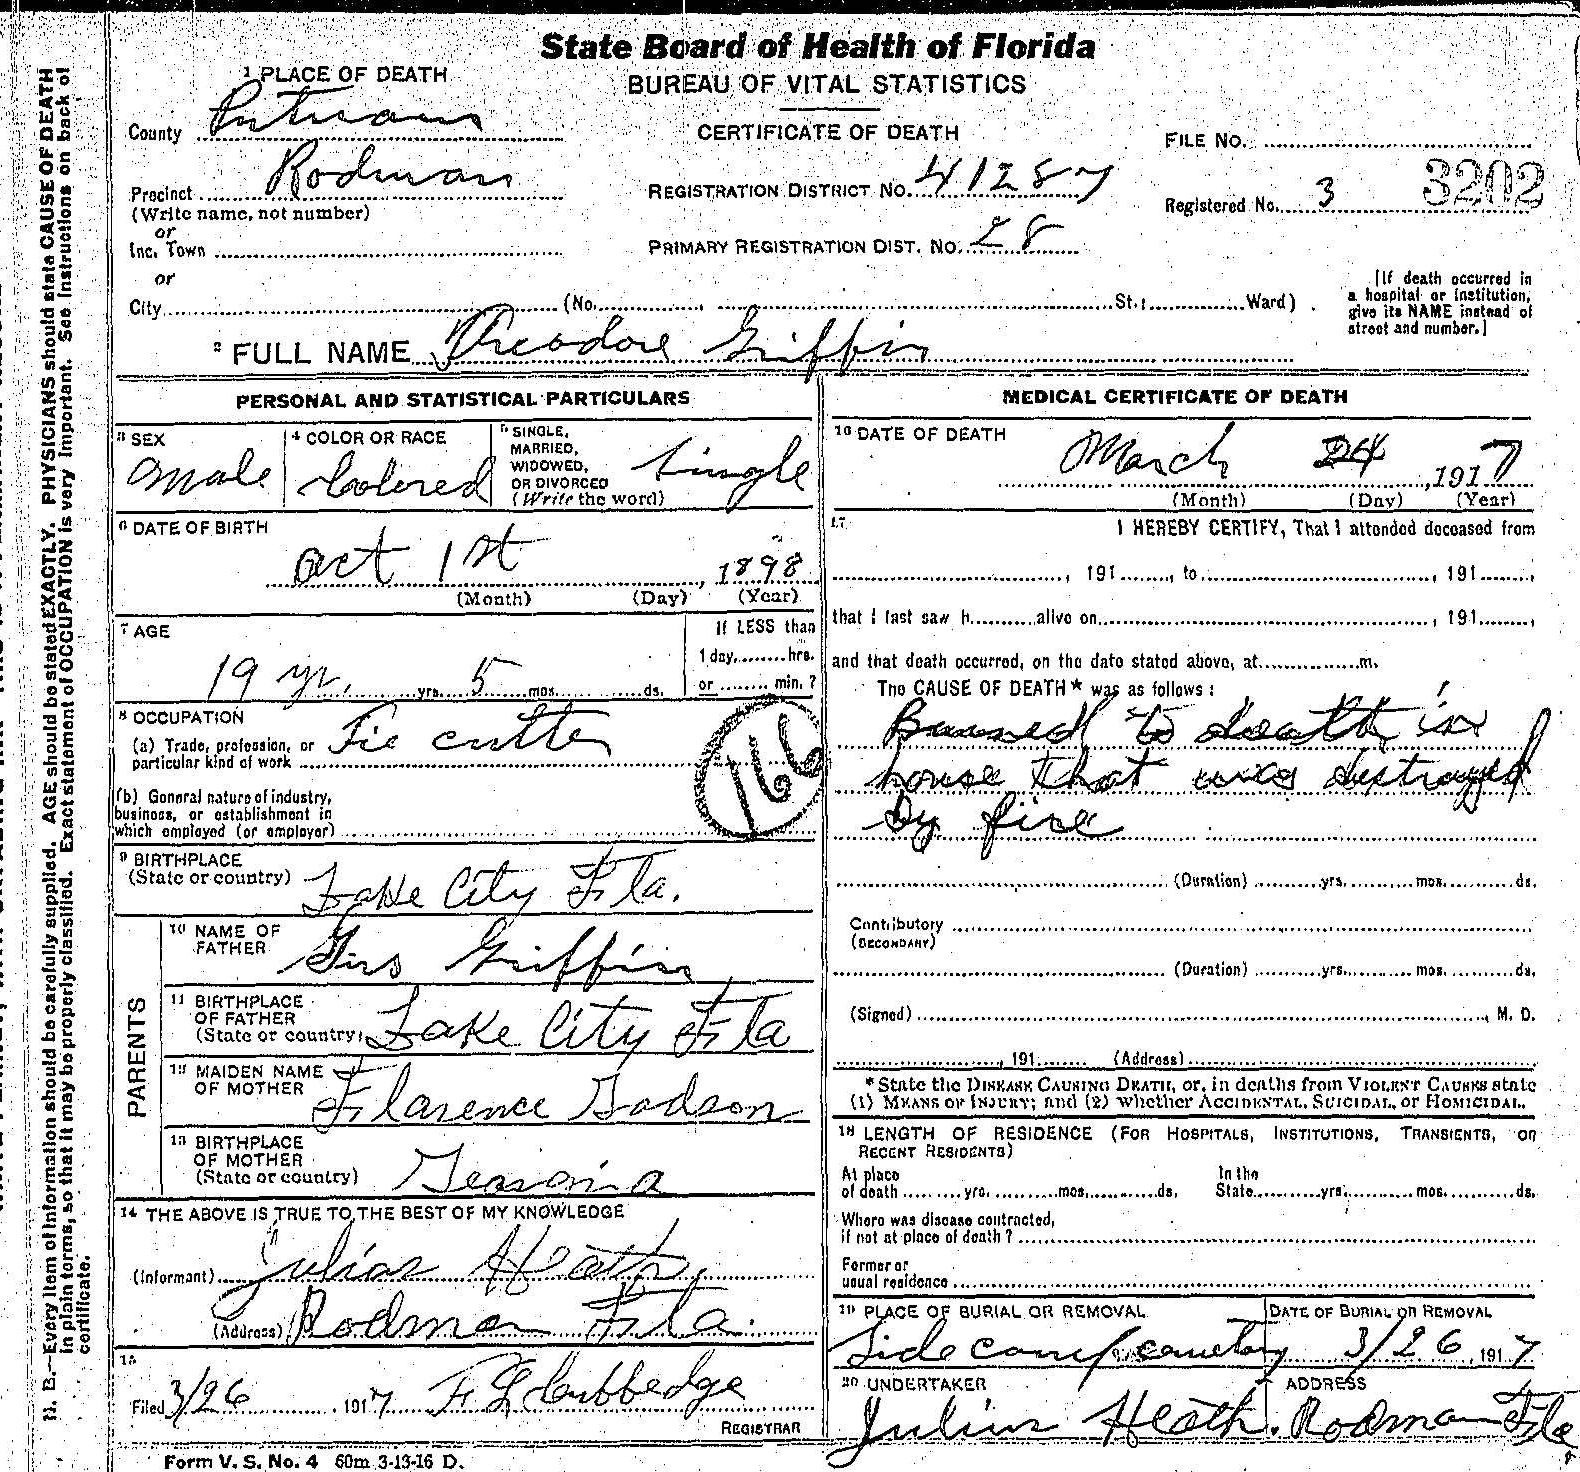 State Board of Health of Florida
BUREAU OF VITAL STATISTICS
CERTIFICATE OF DEATH
1 PLACE OF DEATH
County Putnam
Precinct Rodman
(Write name, not number)
or
Inc. Town
or
City (No. , St.; Ward)
REGISTRATION DISTRICT No. 41287
PRIMARY REGISTRATION DIST. No. 28
FILE No.
Registered No. 3 3202
[If death occurred in
a hospital or institution,
give its NAME instead of
street and number.]
2 FULL NAME Theodore Griffin
PERSONAL AND STATISTICAL PARTICULARS
3 SEX
Male
4 COLOR OR RACE
Colored
5 SINGLE,
MARRIED,
WIDOWED,
OR DIVORCED
(Write the word)
Single
6 DATE OF BIRTH
Oct 1st , 1898
(Month) (Day) (Year)
7 AGE
19 yr. yrs. 5 mos. ds.
If LESS than
1 day, hrs.
or min.?
8 OCCUPATION
(a) Trade, profession, or
particular kind of work
Tie cutter
166
(b) General nature of industry,
business, or establishment in
which employed (or employer)
9 BIRTHPLACE
(State or country) Lake City Fla.
PARENTS
10 NAME OF
FATHER
Gus Griffin
11 BIRTHPLACE
OF FATHER
(State or country) Lake City Fla
12 MAIDEN NAME
OF MOTHER
Flarence Godson
13 BIRTHPLACE
OF MOTHER
(State or country) Georgia
14 THE ABOVE IS TRUE TO THE BEST OF MY KNOWLEDGE
(Informant) Julias Heath
(Address) Rodman Fla.
15
Filed 3/26 , 1917 F L Cubbedge
REGISTRAR
Form V. S. No. 4 60m 3-13-16 D.
MEDICAL CERTIFICATE OF DEATH
16 DATE OF DEATH
March 24 , 1917
(Month) (Day) (Year)
17 I HEREBY CERTIFY, That I attended deceased from
, 191 , to , 191 ,
that I last saw h alive on , 191 ,
and that death occurred, on the date stated above, at m.
The CAUSE OF DEATH* was as follows:
Burned to death in
house that was destroyed
by fire
(Duration) yrs. mos. ds.
Contributory
(SECONDARY)
(Duration) yrs. mos. ds.
(Signed) , M. D.
, 191 (Address)
*State the DISEASE CAUSING DEATH, or, in deaths from VIOLENT CAUSES state
(1) MEANS OF INJURY; and (2) whether ACCIDENTAL, SUICIDAL, or HOMICIDAL.
18 LENGTH OF RESIDENCE (FOR HOSPITALS, INSTITUTIONS, TRANSIENTS, OR
RECENT RESIDENTS)
At place
of death yrs. mos. ds.
In the
State yrs. mos. ds.
Where was disease contracted,
if not at place of death?
Former or
usual residence
19 PLACE OF BURIAL OR REMOVAL
Side camp cemetery
DATE OF BURIAL OR REMOVAL
3/26 , 1917
20 UNDERTAKER
Julius Heath.
ADDRESS
Rodman Fla
N. B.—Every item of information should be carefully supplied. AGE should be stated EXACTLY. PHYSICIANS should state CAUSE OF DEATH
in plain terms, so that it may be properly classified. Exact statement of OCCUPATION is very important. See instructions on back of
certificate.